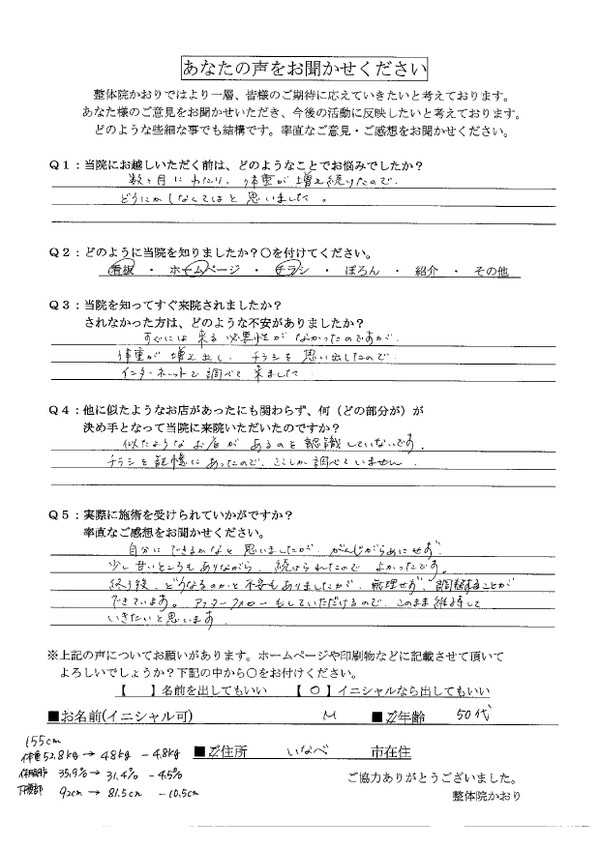 あなたの声をお聞かせください
整体院かおりではより一層、皆様のご期待に応えていきたいと考えております。
あなた様のご意見をお聞かせいただき、今後の活動に反映したいと考えております。
どのような些細な事でも結構です。率直なご意見・ご感想をお聞かせください。
Q1:当院にお越しいただく前は、どのようなことでお悩みでしたか?
数ヶ月にわたり、体重が増え続けたので、
どうにかしなくてはと思いました。
Q2:どのように当院を知りましたか?○を付けてください。
看板 ・ ホームページ ・ チラシ ・ ぽろん ・ 紹介 ・ その他
Q3:当院を知ってすぐ来院されましたか?
されなかった方は、どのような不安がありましたか?
すぐには来る必要性がなかったのですが、
体重が増え出し、チラシを思い出したので、
インターネットで調べて来ました
Q4:他に似たようなお店があったにも関わらず、何(どの部分が)が
決め手となって当院に来院いただいたのですか?
似たようなお店があるのを認識していないです。
チラシを記憶にあったので、ここしか調べていません
Q5:実際に施術を受けられていかがですか?
率直なご感想をお聞かせください。
自分にできるかなと思いましたが、がんじがらめにせず、
少し甘いところもありながら、続けられたのでよかったです。
終了後、どうなるのかと不安もありましたが、無理せず、調整することが
できています。アフターフォローもしていただけるので、このまま維持して
いきたいと思います
※上記の声についてお願いがあります。ホームページや印刷物などに記載させて頂いて
よろしいでしょうか?下記の中から○をお付けください。
【 】名前を出してもいい 【 ○ 】イニシャルなら出してもいい
■お名前(イニシャル可) M ■年齢 50代
■住所 いなべ 市在住
155cm
体重52.8kg → 48kg -4.8kg
体脂肪 35.9% → 31.4% -4.5%
下腹部 92cm → 81.5cm -10.5cm
ご協力ありがとうございました。
整体院かおり